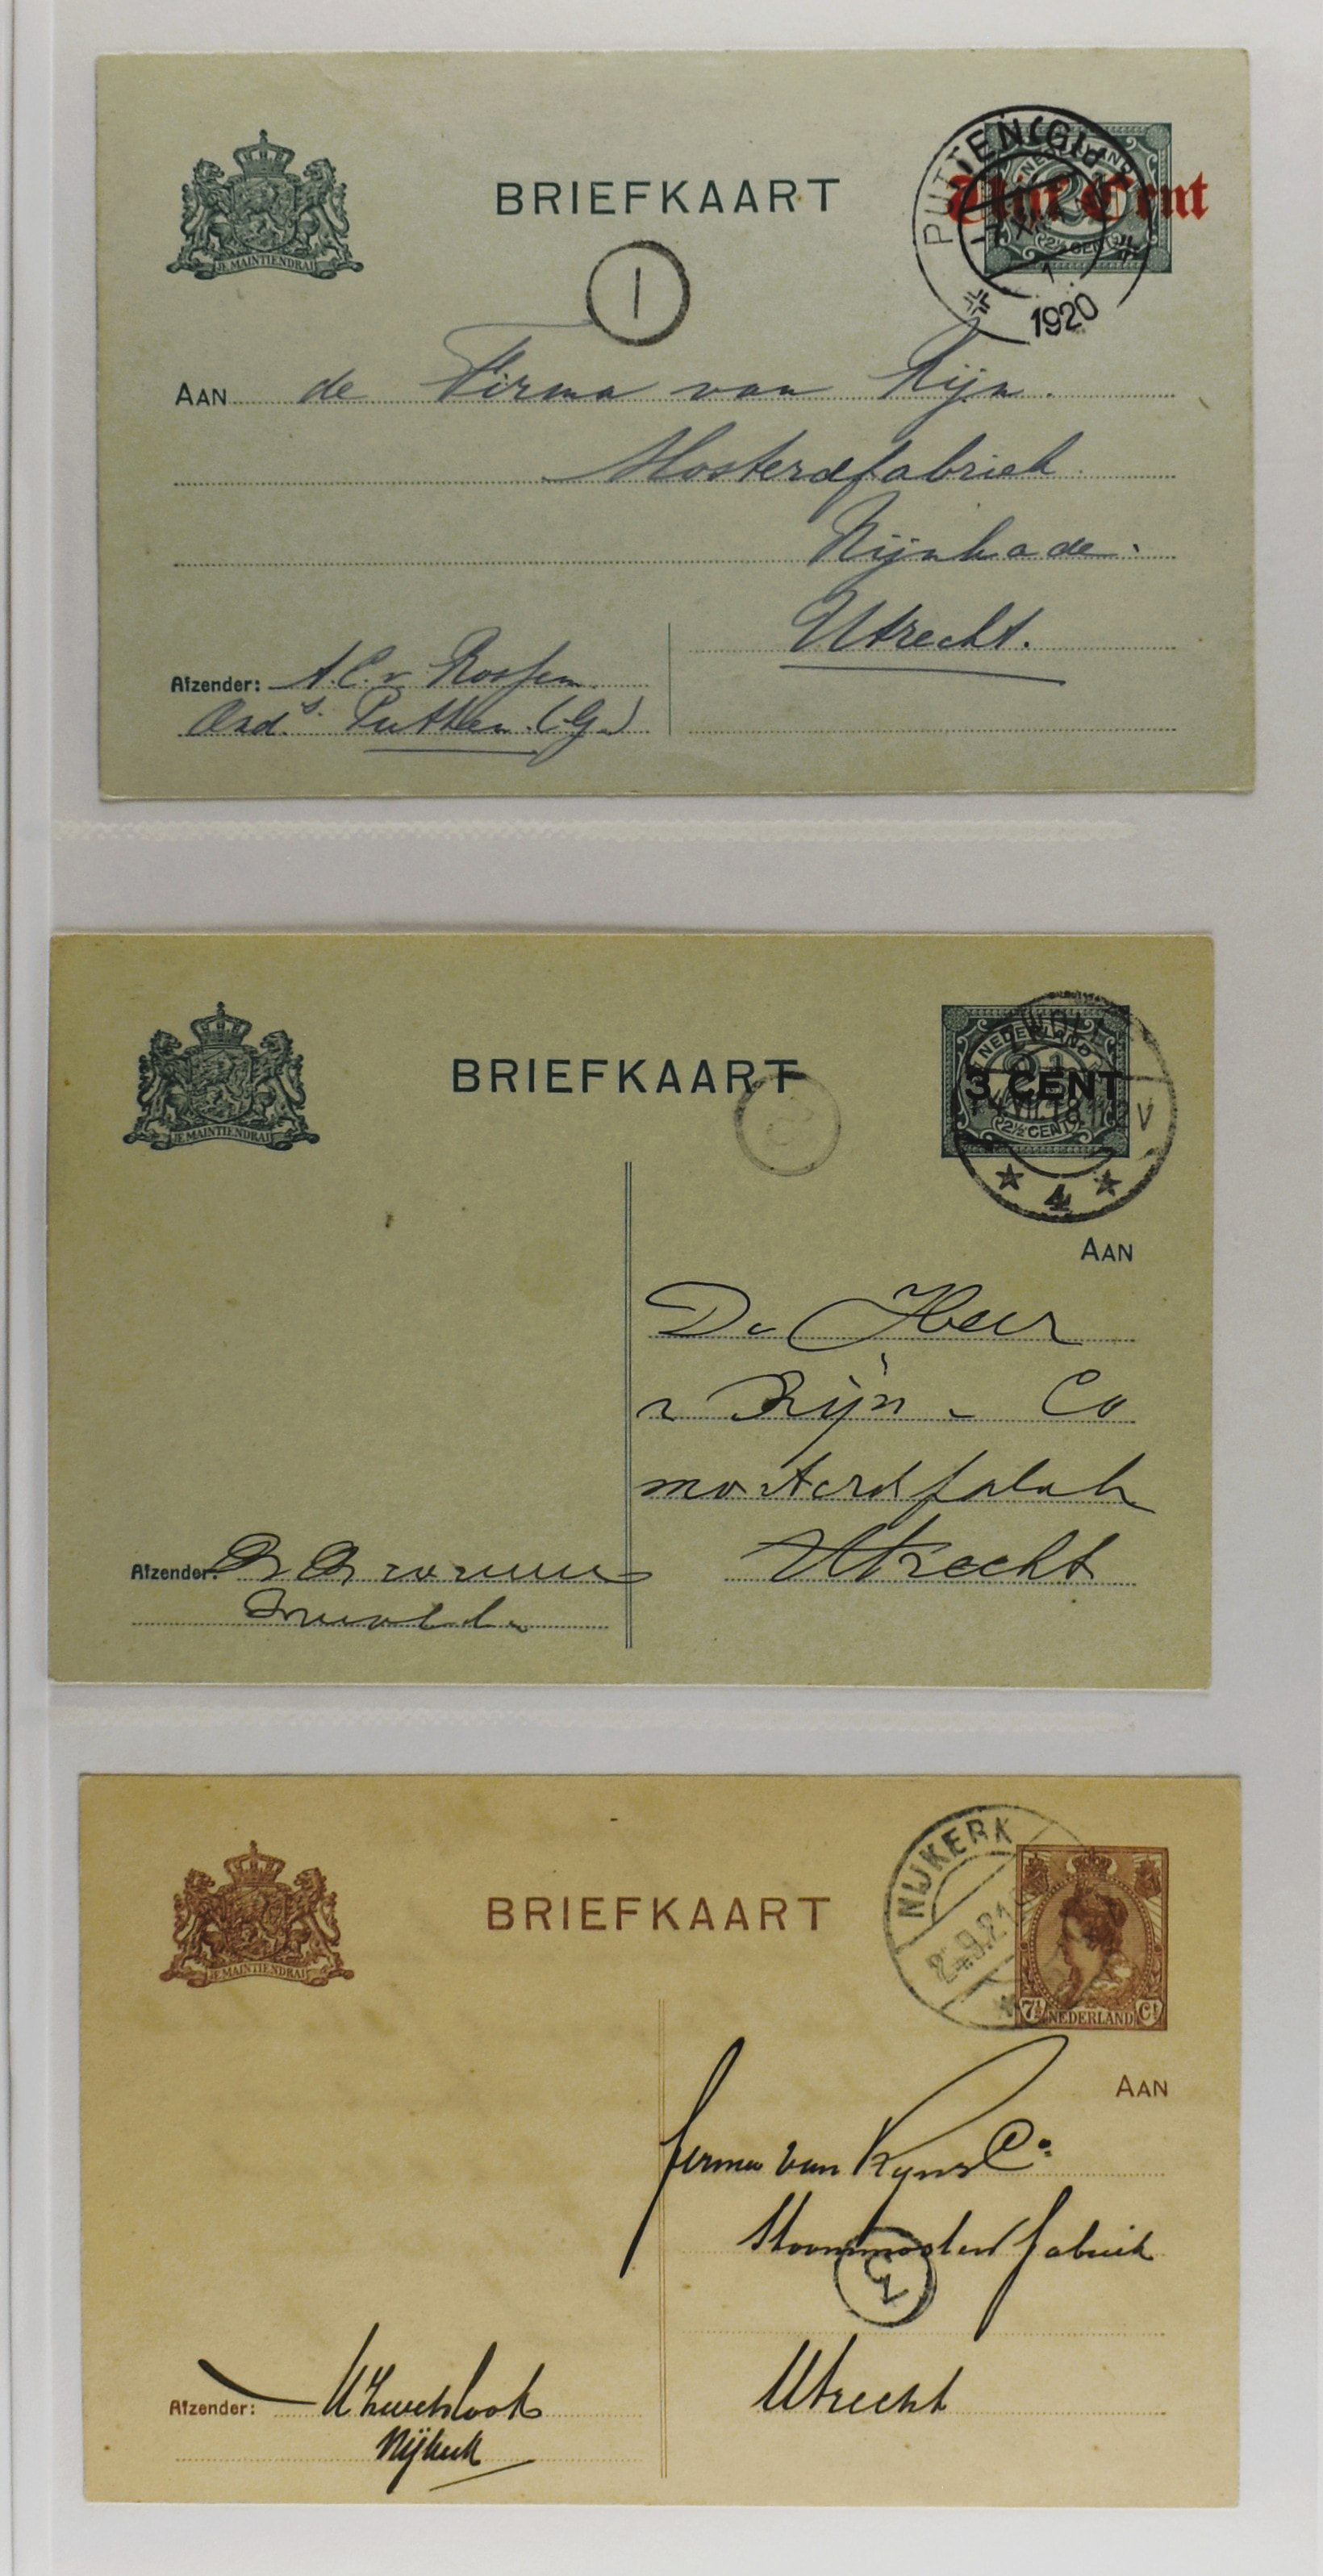 JE MAINTIENDRAI
BRIEFKAART
PUTTEN (Gld)
NEDERLAND
Vijf Cent
2½ CENT
1920
1
AAN de Firma van Rijn.
Mosterdfabriek
Rijnkade.
Utrecht.
Afzender: A.C. v.
Putten (G.)
JE MAINTIENDRAI
BRIEFKAART
NEDERLAND
3 CENT
2½ CENT
V
4
AAN
De Heer
v Rijn - Co
Utrecht
Afzender:
JE MAINTIENDRAI
BRIEFKAART
NIJKERK
7½ NEDERLAND Ct
AAN
firma van Rijn & Co
Stoommosterdfabriek
Utrecht
Afzender:
Nijkerk